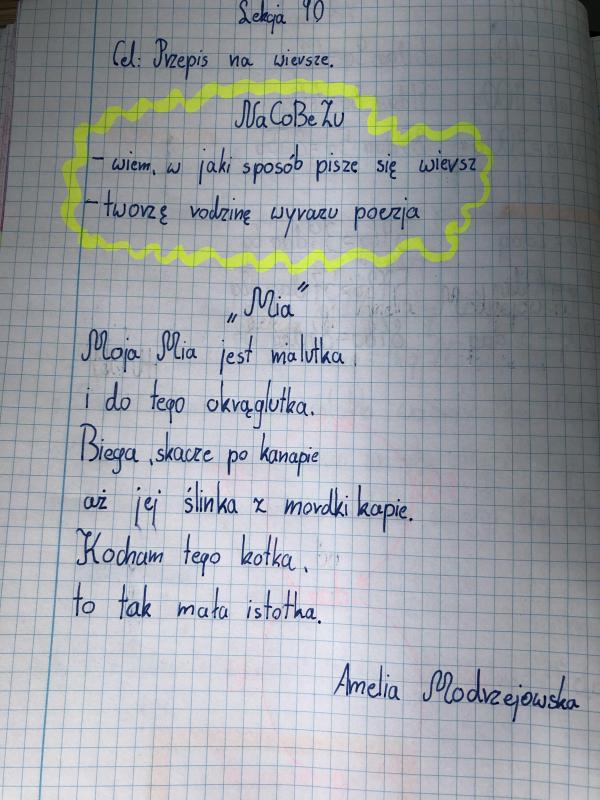 Lekcja 90
Cel: Przepis na wiersze.
NaCoBeZu
- wiem, w jaki sposób pisze się wiersz
- tworzę rodzinę wyrazu poezja
„Mia”
Moja Mia jest malutka
i do tego okrąglutka.
Biega, skacze po kanapie
aż jej ślinka z mordki kapie.
Kocham tego kotka,
to tak mała istotka.
Amelia Modrzejowska